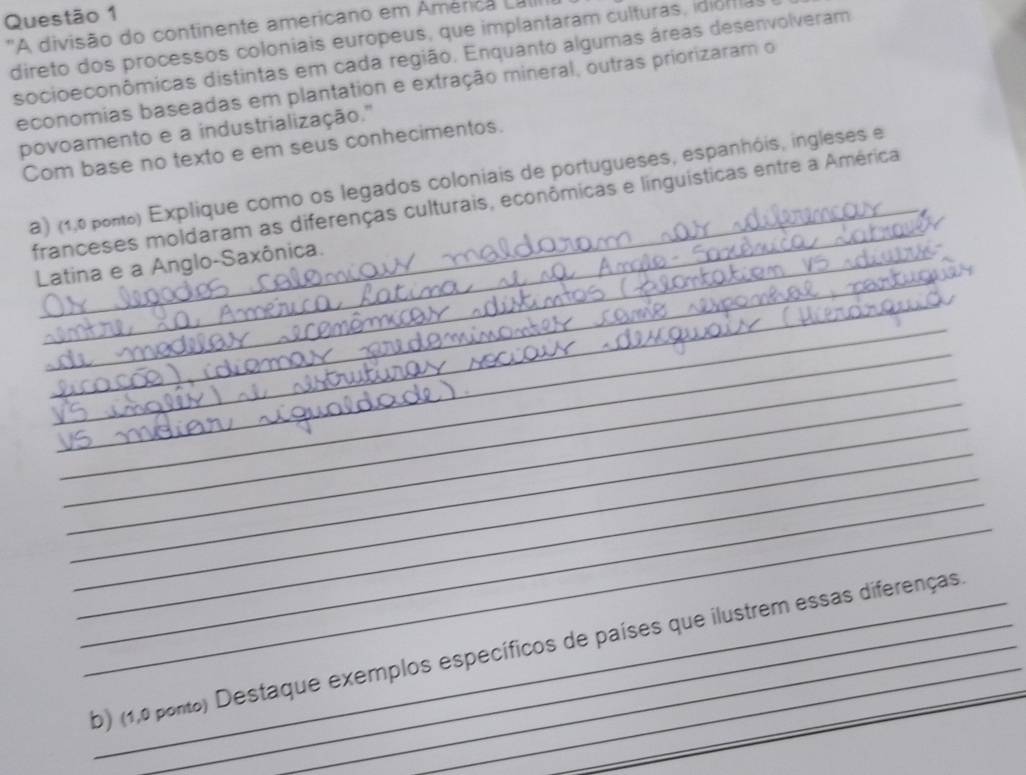 Questão 1
"A divisão do continente americano em América
direto dos processos coloniais europeus, que implantaram culturas, idiomas
socioeconômicas distintas em cada região. Enquanto algumas áreas desenvolveram
economias baseadas em plantation e extração mineral, outras priorizaram o
povoamento e a industrialização."
Com base no texto e em seus conhecimentos.
a) (1,0 ponto) Explique como os legados coloniais de portugueses, espanhóis, ingleses e
franceses moldaram as diferenças culturais, econômicas e linguísticas entre a América
Latina e a Anglo-Saxônica.
Os legados coloniais moldaram as diferenças
entre a América Latina e a Anglo-Saxônica através
de modelos econômicos distintos (plantation vs diversi-
ficação), idiomas predominantes como espanhol, português
vs inglês) e estruturas sociais desguais (hierárquid
vs maior igualdade).
b) (1,0 ponto) Destaque exemplos específicos de países que ilustrem essas diferenças.